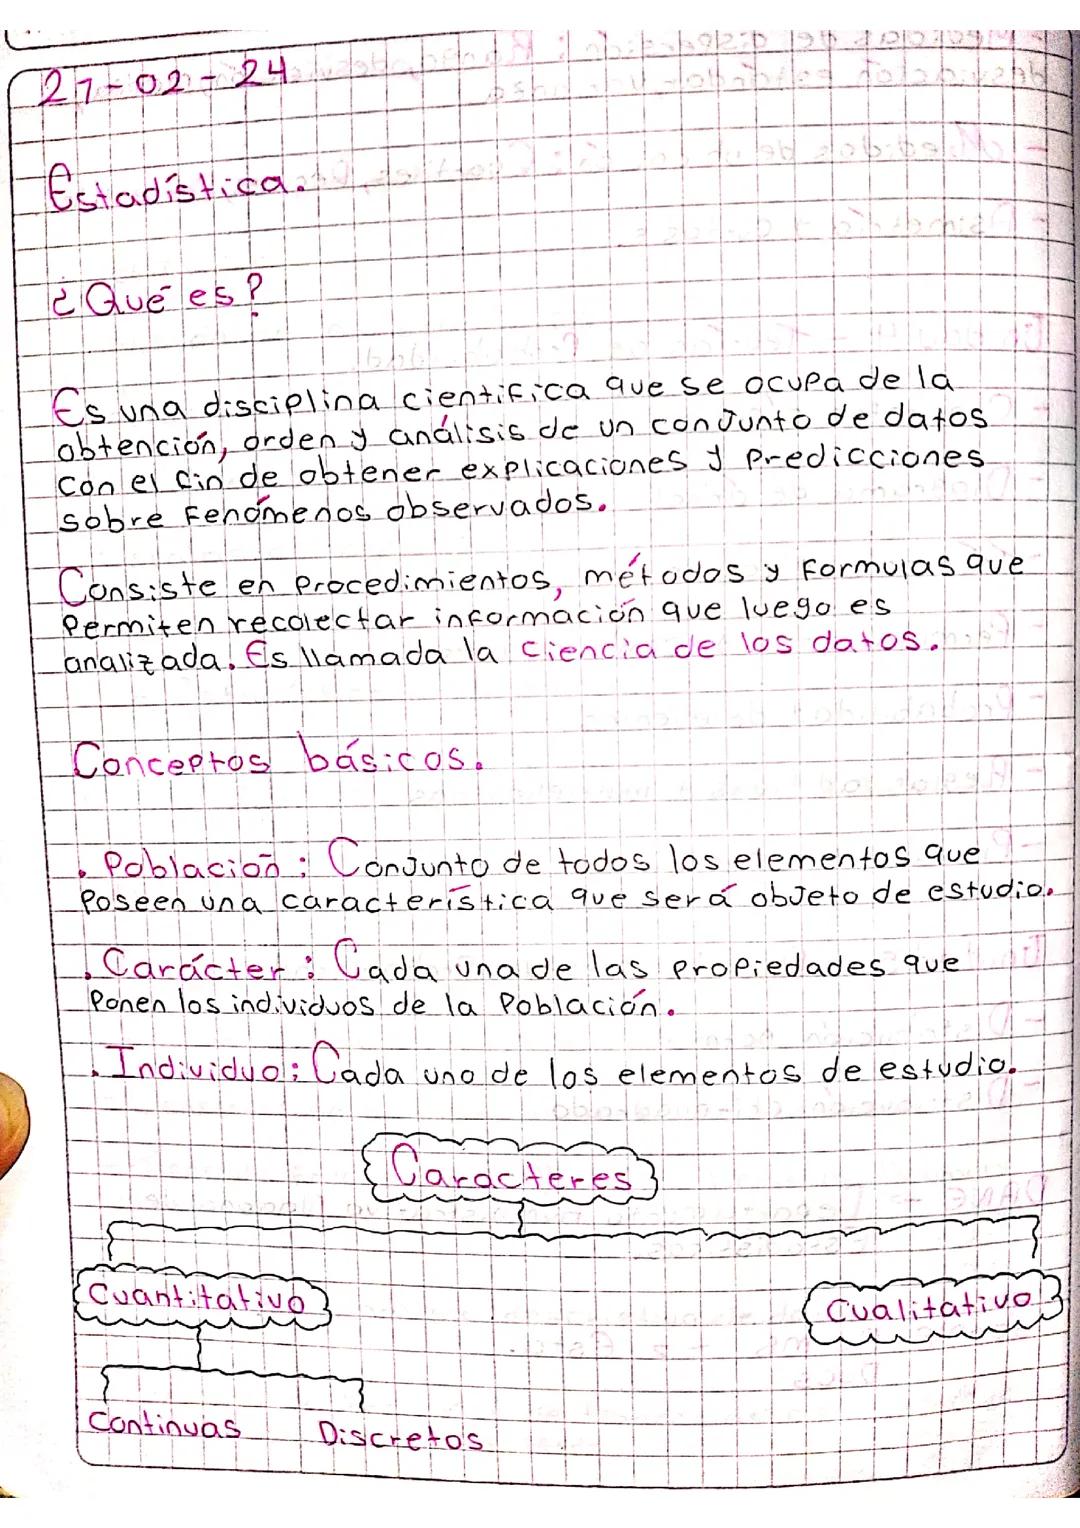 27-02-24
Estadística.
¿Qué es?
Es una disciplina cientifica que se ocupa de la
obtención, orden y análisis de un conjunto de datos
con el fin de obtener explicaciones y predicciones
sobre fenómenos observados.
Consiste en procedimientos, métodos y formulas que
permiten recolectar información que luego es
analizada. Es llamada la ciencia de los datos.
Conceptos básicos.
. Población: Conjunto de todos los elementos que
poseen una característica que será objeto de estudio.
. Carácter: Cada una de las propiedades que
ponen los individuos de la población.
. Individuo: Cada uno de los elementos de estudio.
Caracteres
Cuantitativo
Cualitativo
Continuas Discretos